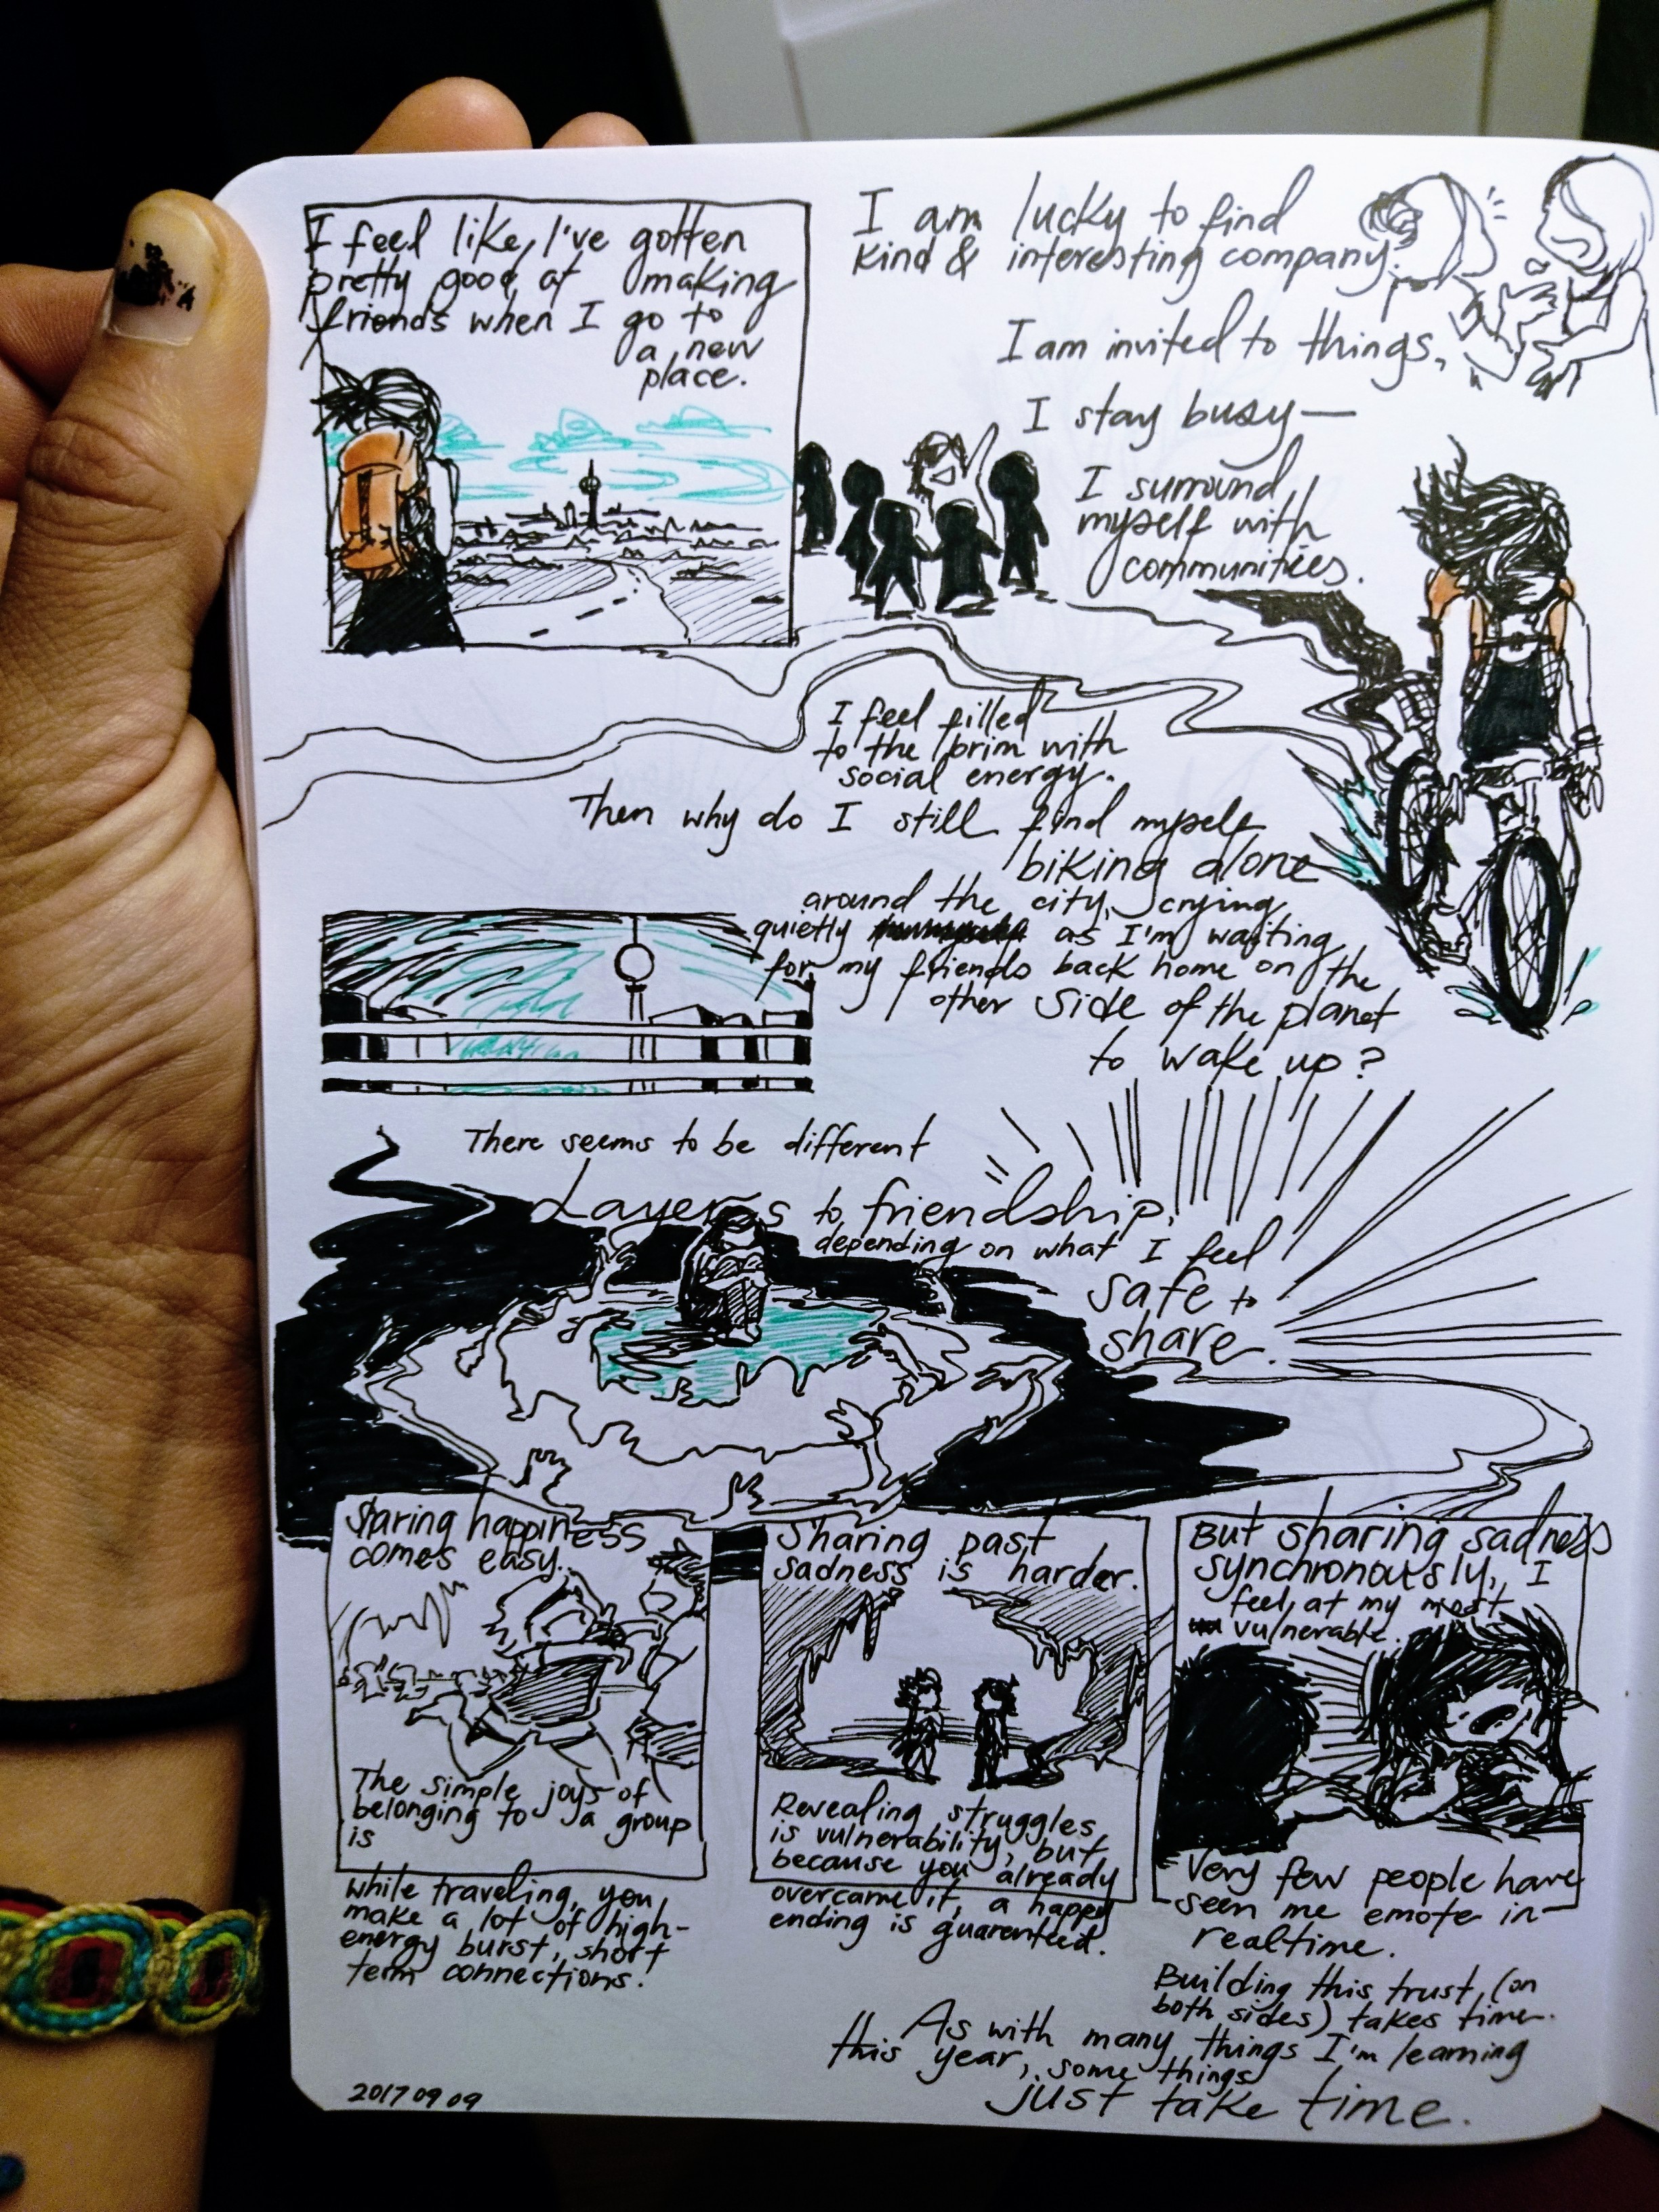 I feel like, I've gotten
pretty good at making
friends when I go to
a new
place.
I am lucky to find
kind & interesting company.
I am invited to things,
I stay busy—
I surround
myself with
communities.
I feel filled
to the brim with
social energy.
Then why do I still find myself
biking alone
around the city, crying
quietly as I'm waiting
for my friends back home on the
other side of the planet
to wake up?
There seems to be different
Layers to friendship,
depending on what I feel
safe to
share.
Sharing happiness
comes easy.
The simple joys of
belonging to a group
is
while traveling, you
make a lot of high-
energy burst, short
term connections.
Sharing past
sadness is harder.
Revealing struggles
is vulnerability, but
because you already
overcame it, a happy
ending is guarenteed.
But sharing sadness
synchronously, I
feel at my most
vulnerable.
Very few people have
seen me emote in-
realtime.
Building this trust (on
both sides) takes time.
As with many things I'm learning
this year, some things
just take time.
2017 09 09